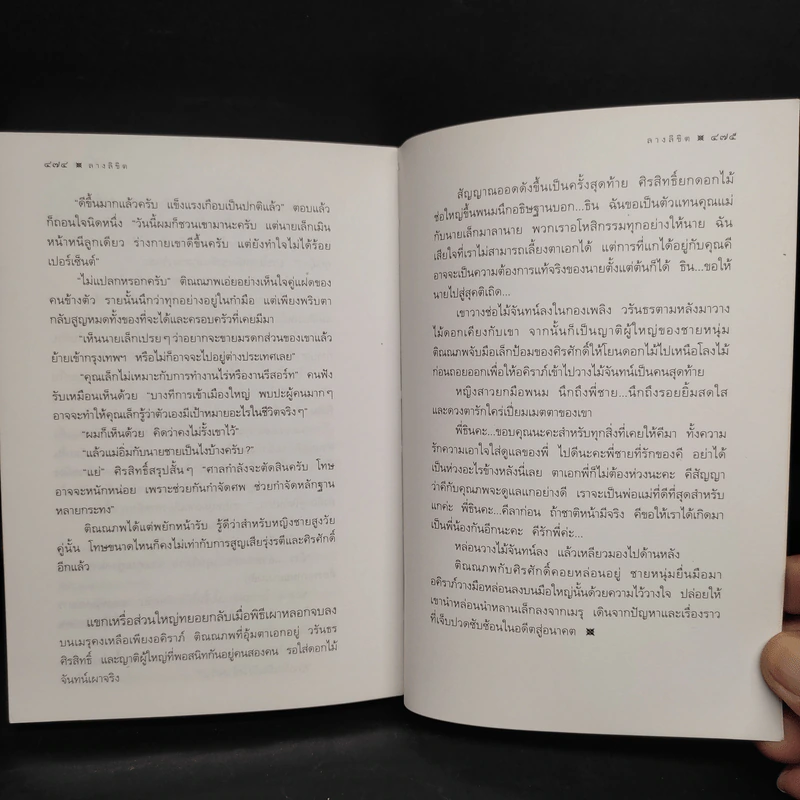 ๔๗๔ ※ ลางลิขิต
“ดีขึ้นมากแล้วครับ แข็งแรงเกือบเป็นปกติแล้ว” ตอบแล้ว
ก็ถอนใจนิดหนึ่ง “วันนี้ผมก็ชวนเขามานะครับ แต่นายเล็กเมิน
หน้าหนีลูกเดียว ร่างกายเขาดีขึ้นครับ แต่ยังทำใจไม่ได้ร้อย
เปอร์เซ็นต์”
“ไม่แปลกหรอกครับ” ติณณภพเอ่ยอย่างเห็นใจคู่แฝดของ
คนข้างตัว รายนั้นนึกว่าทุกอย่างอยู่ในกำมือ แต่เพียงพริบตา
กลับสูญหมดทั้งของที่จะได้และครอบครัวที่เคยมีมา
“เห็นนายเล็กเปรยๆ ว่าอยากจะขายมรดกส่วนของเขาแล้ว
ย้ายเข้ากรุงเทพฯ หรือไม่ก็อาจจะไปอยู่ต่างประเทศเลย”
“คุณเล็กไม่เหมาะกับการทำงานไร่หรืองานรีสอร์ท” คนฟัง
รับเหมือนเห็นด้วย “บางทีการเข้าเมืองใหญ่ พบปะผู้คนมากๆ
อาจจะทำให้คุณเล็กรู้ว่าตัวเองมีเป้าหมายอะไรในชีวิตจริงๆ”
“ผมก็เห็นด้วย คิดว่าคงไม่รั้งเขาไว้”
“แล้วแม่อิ่มกับนายชายเป็นไงบ้างครับ?”
“แย่” ศิรสิทธิ์สรุปสั้นๆ “ศาลกำลังจะตัดสินครับ โทษ
อาจจะหนักหน่อย เพราะช่วยกันกำจัดศพ ช่วยกำจัดหลักฐาน
หลายกระทง”
ติณณภพได้แต่พยักหน้ารับ รู้ดีว่าสำหรับหญิงชายสูงวัย
คู่นั้น โทษขนาดไหนก็คงไม่เท่ากับการสูญเสียรุ่งรตีและศิรศักดิ์
อีกแล้ว
แขกเหรื่อส่วนใหญ่ทยอยกลับเมื่อพิธีเผาหลอกจบลง
บนเมรุคงเหลือเพียงอคิราภ์ ติณณภพที่อุ้มตาเอกอยู่ วรันธร
ศิรสิทธิ์ และญาติผู้ใหญ่ที่พอสนิทกันอยู่คนสองคน รอใส่ดอกไม้
จันทน์เผาจริง
ลางลิขิต ※ ๔๗๕
สัญญาณออดดังขึ้นเป็นครั้งสุดท้าย ศิรสิทธิ์ยกดอกไม้
ช่อใหญ่ขึ้นพนมนึกอธิษฐานบอก...ธิน ฉันขอเป็นตัวแทนคุณแม่
กับนายเล็กมาลานาย พวกเราอโหสิกรรมทุกอย่างให้นาย ฉัน
เสียใจที่เราไม่สามารถเลี้ยงตาเอกได้ แต่การที่แกได้อยู่กับคุณคี
อาจจะเป็นความต้องการแท้จริงของนายตั้งแต่ต้นก็ได้ ธิน...ขอให้
นายไปสู่สุคติเถิด...
เขาวางช่อไม้จันทน์ลงในกองเพลิง วรันธรตามหลังมาวาง
ไม้ดอกเคียงกับเขา จากนั้นก็เป็นญาติผู้ใหญ่ของชายหนุ่ม
ติณณภพจับมือเล็กป้อมของศิรศักดิ์ให้โยนดอกไม้ไปเหนือโลงไม้
ก่อนถอยออกเพื่อให้อคิราภ์เข้าไปวางไม้จันทน์เป็นคนสุดท้าย
หญิงสาวยกมือพนม นึกถึงพี่ชาย...นึกถึงรอยยิ้มสดใส
และดวงตารักใคร่เปี่ยมเมตตาของเขา
พี่ธินคะ...ขอบคุณนะคะสำหรับทุกสิ่งที่เคยให้คีมา ทั้งความ
รักความเอาใจใส่ดูแลของพี่ ไปดีนะคะพี่ชายที่รักของคี อย่าได้
เป็นห่วงอะไรข้างหลังนี่เลย ตาเอกพี่ก็ไม่ต้องห่วงนะคะ คีสัญญา
ว่าคีกับคุณภพจะดูแลแกอย่างดี เราจะเป็นพ่อแม่ที่ดีที่สุดสำหรับ
แกค่ะ พี่ธินคะ...คีลาก่อน ถ้าชาติหน้ามีจริง คีขอให้เราได้เกิดมา
เป็นพี่น้องกันอีกนะคะ คีรักพี่ค่ะ...
หล่อนวางไม้จันทน์ลง แล้วเหลียวมองไปด้านหลัง
ติณณภพกับศิรศักดิ์คอยหล่อนอยู่ ชายหนุ่มยื่นมือมา
อคิราภ์วางมือหล่อนลงบนมือใหญ่นั้นด้วยความไว้วางใจ ปล่อยให้
เขานำหล่อนนำหลานเล็กลงจากเมรุ เดินจากปัญหาและเรื่องราว
ที่เจ็บปวดซับซ้อนในอดีตสู่อนาคต ※